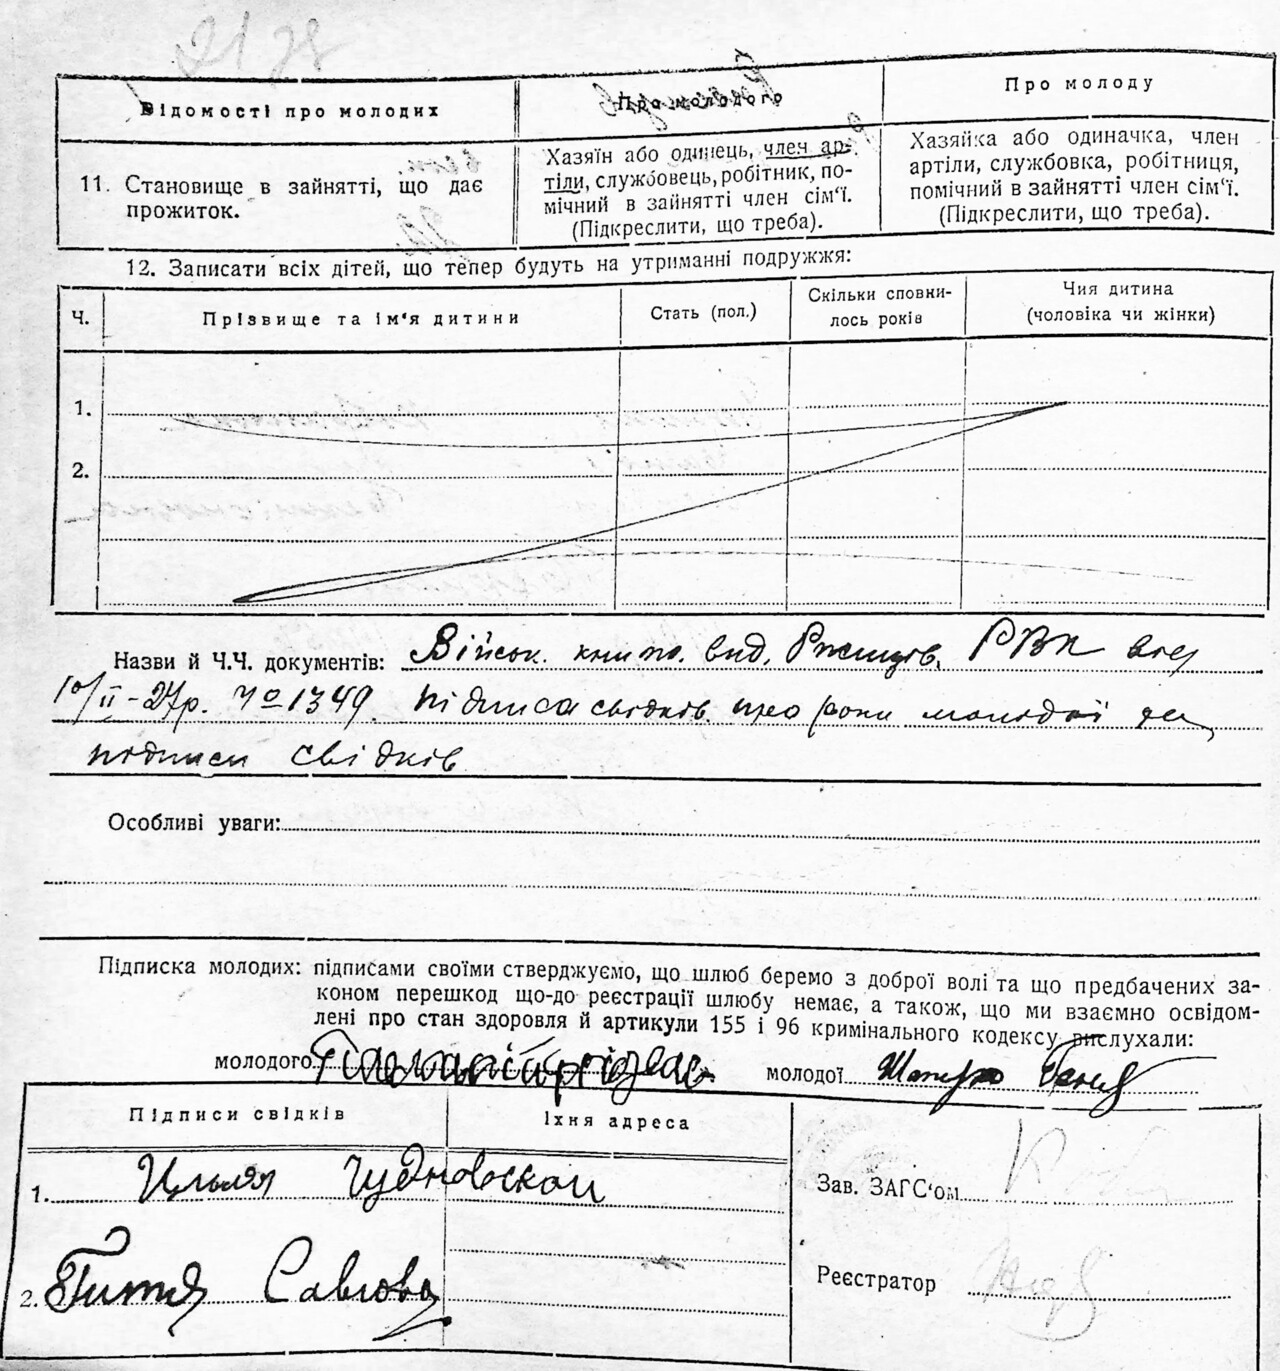 Відомості про молодих
Про молодого
Про молоду
11. Становище в зайнятті, що дає
прожиток.
Хазяїн або одинець, член ар-
тіли, службовець, робітник, по-
мічний в зайнятті член сім'ї.
(Підкреслити, що треба).
Хазяйка або одиначка, член
артіли, службовка, робітниця,
помічний в зайнятті член сім'ї.
(Підкреслити, що треба).
12. Записати всіх дітей, що тепер будуть на утриманні подружжя:
Ч.
Прізвище та ім'я дитини
Стать (пол.)
Скільки сповни-
лось років
Чия дитина
(чоловіка чи жінки)
1.
2.
Назви й Ч.Ч. документів: Військ. книж. вид. РВК від
10/II-27р. № 1349. підписа свідків про роки молодої та
підписи свідків
Особливі уваги:
Підписка молодих: підписами своїми стверджуємо, що шлюб беремо з доброї волі та що предбачених за-
коном перешкод що-до реєстрації шлюбу немає, а також, що ми взаємно освідом-
лені про стан здоровля й артикули 155 і 96 кримінального кодексу вислухали:
молодого
молодої
Підписи свідків
Їхня адреса
1. Чудновской
2. Гитля
Зав. ЗАГС'ом
Реєстратор